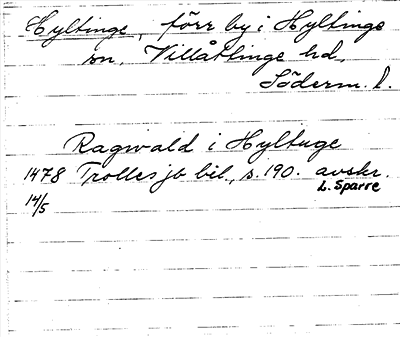 Hyltinge, förr by i Hyltinge
sn, Villåttinge hd,
Söderm. l.
Ragwald i Hyltuge
1478 Trolles jb bil., s. 190. avskr.
L. Sparre
14/5